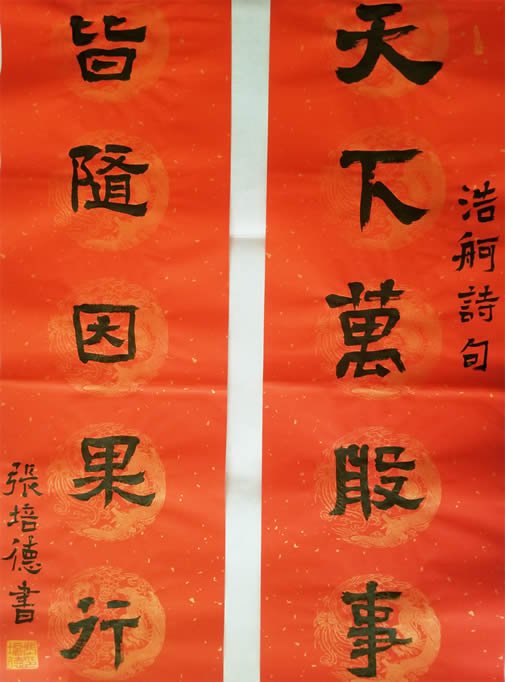 天下萬般事
浩舸詩句
皆隨因果行
張培德書